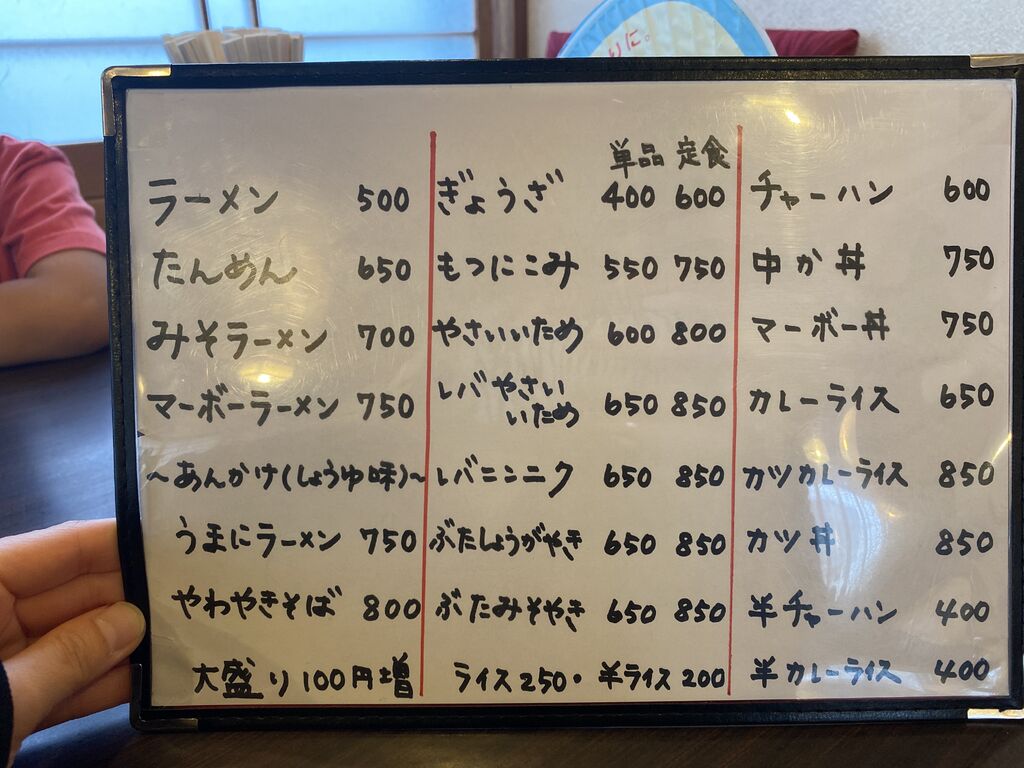 りに。
ラーメン 500
たんめん 650
みそラーメン 700
マーボーラーメン 750
〜あんかけ(しょうゆ味)〜
うまにラーメン 750
やわやきそば 800
大盛り100円増
単品 定食
ぎょうざ 400 600
もつにこみ 550 750
やさいいため 600 800
レバやさい
いため 650 850
レバニンニク 650 850
ぶたしょうがやき 650 850
ぶたみそやき 650 850
ライス250・半ライス200
チャーハン 600
中か丼 750
マーボー丼 750
カレーライス 650
カツカレーライス 850
カツ丼 850
半チャーハン 400
半カレーライス 400